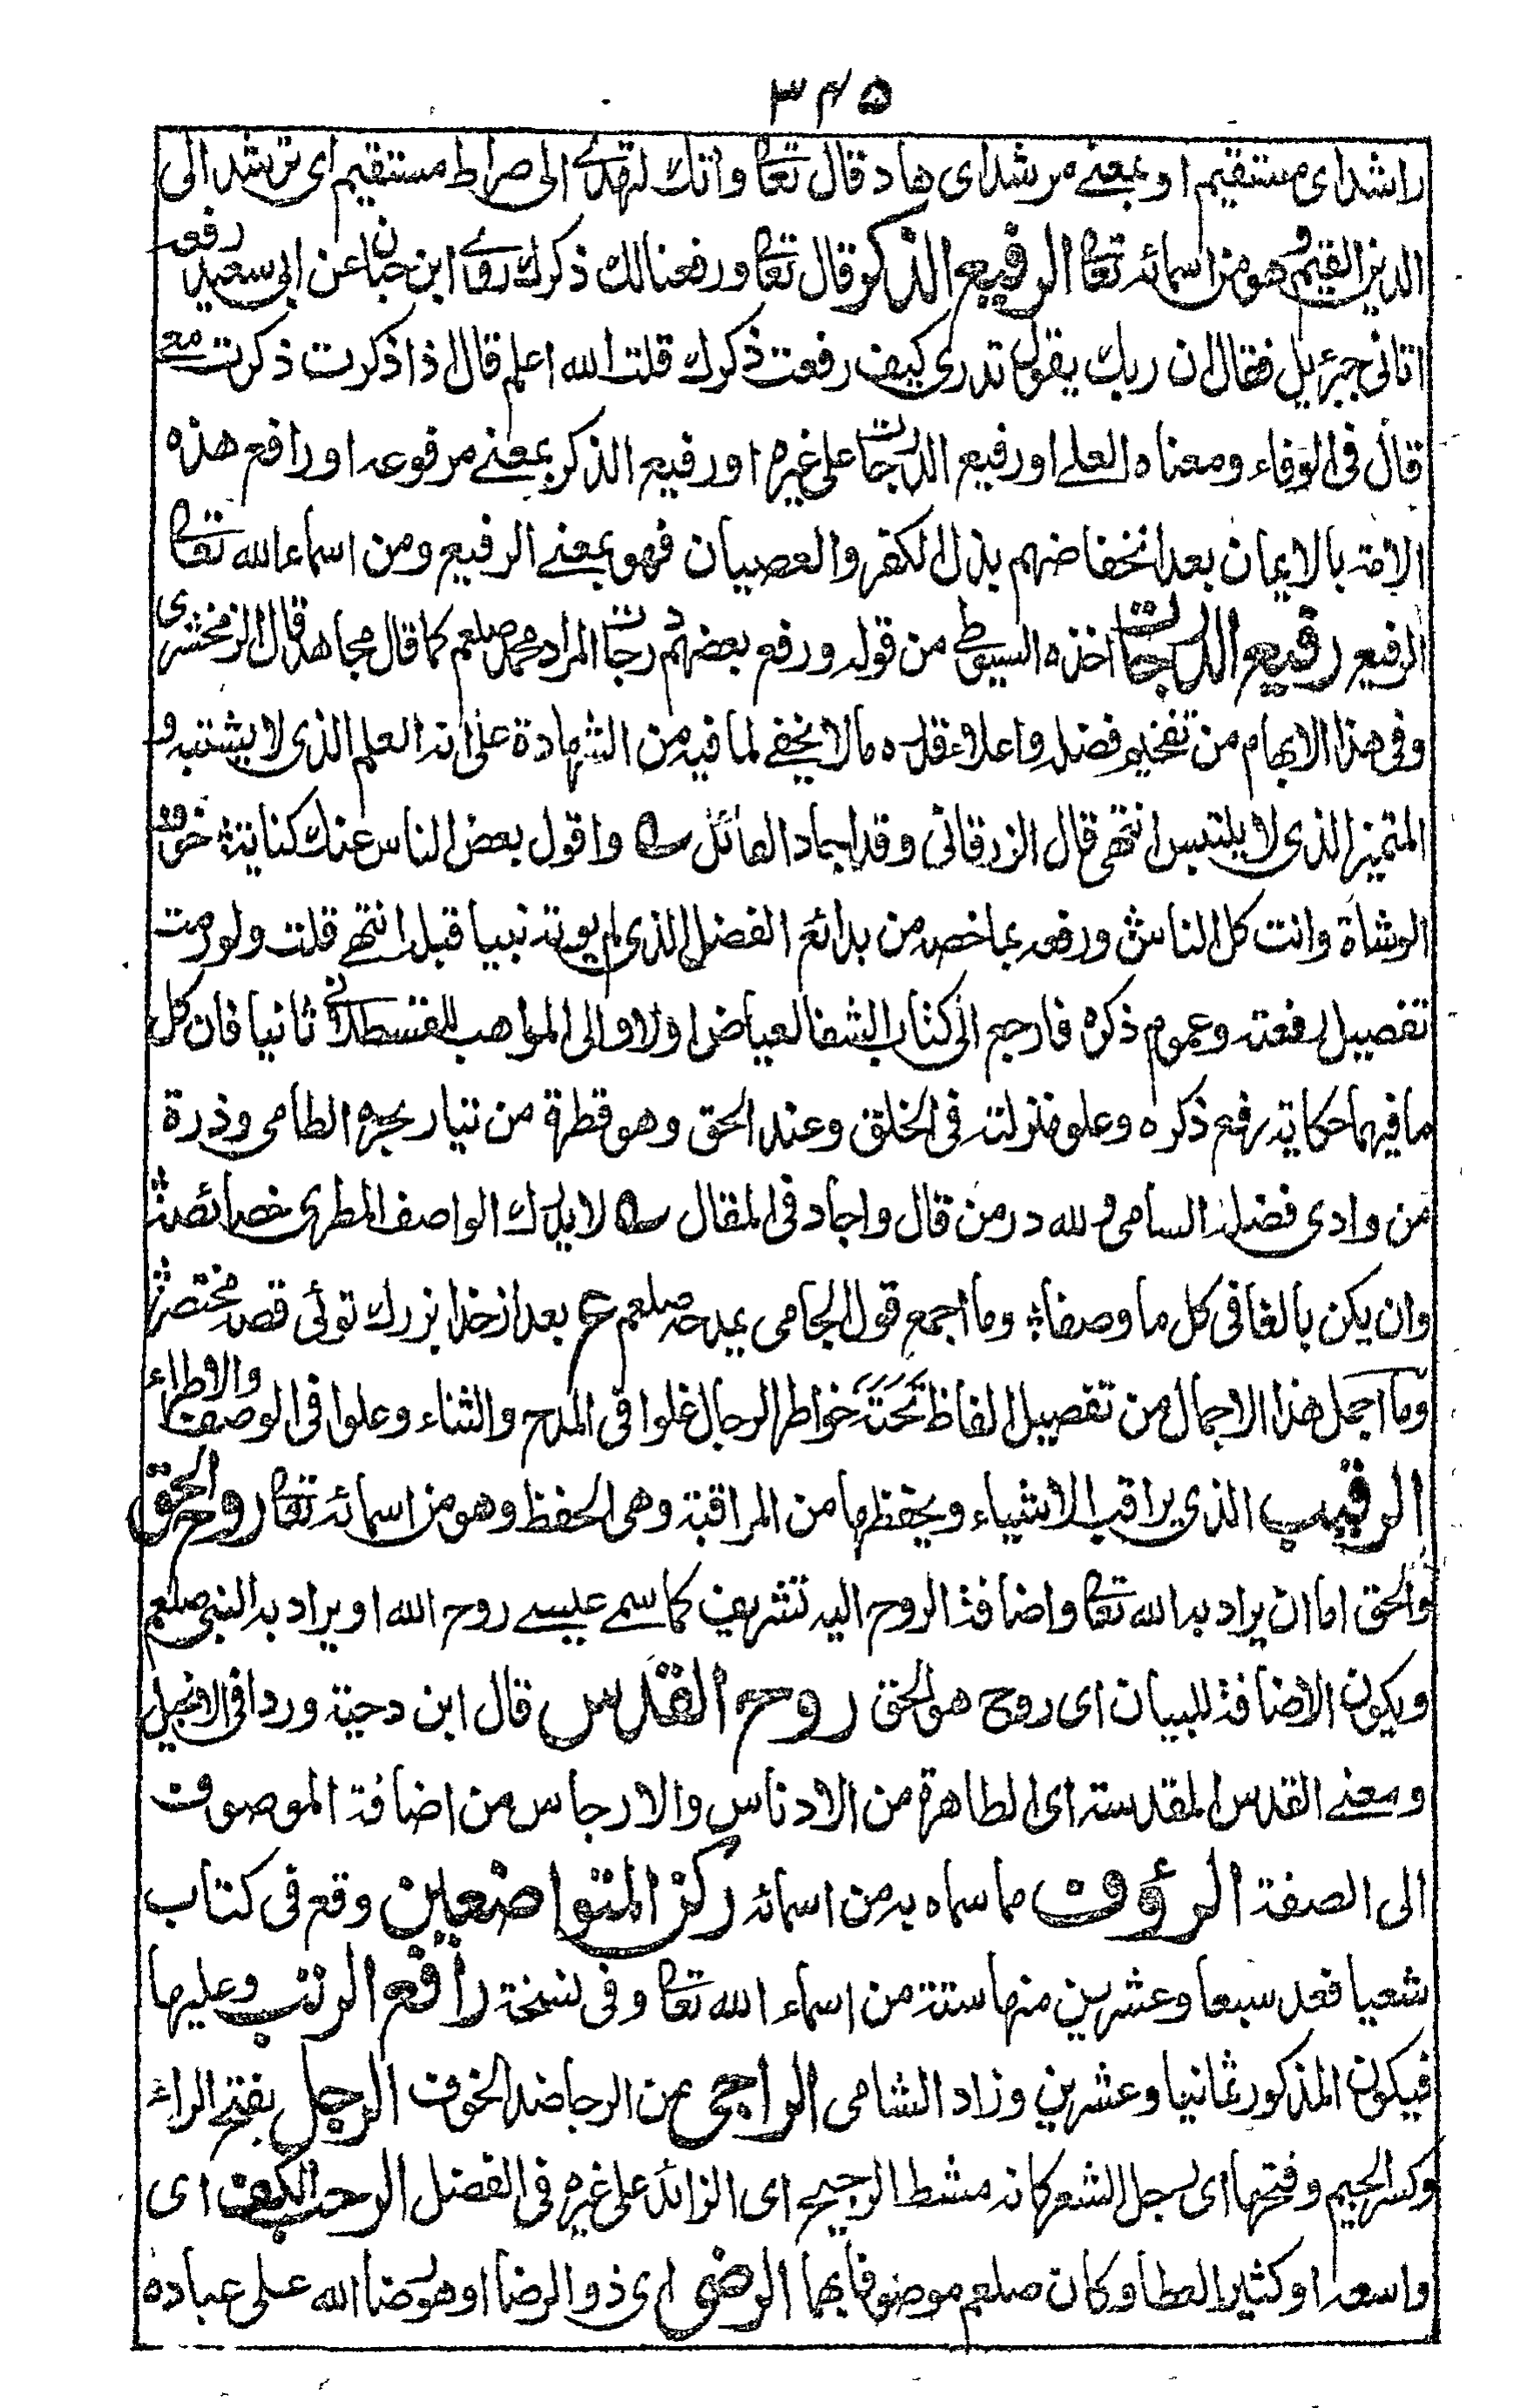 ٣٤٥
راشدا ى مستقيم او بمعنے مرشدا ى هاد قال تعا وانك لتهدے الى صراط مستقيم اى ترشد الى
الدين القيم وهو من اسمائه تعا الرفيع الذكر قال تعا ورفعنا لك ذكرك روے ابن حبان عن ابى سعيد رفعه
اتانى جبرئيل فقال ان ربك يقول تدرى كيف رفعت ذكرك قلت الله اعلم قال اذا ذكرت ذكرت معے
قال فى الوفاء ومعناه العلے او رفيع الدرجات على غيره او رفيع الذكر بمعنے مرفوعه او رافع هذه
الامة بالايمان بعد انخفاضهم بذل الكفر والعصيان فهو بمعنے الرفيع ومن اسماء الله تعا
الرفيع رفيع الدرجات اخذه السيوطى من قوله ورفع بعضهم درجات المراد محمد صلعم كما قال مجاهد قال الزمخشرى
وفى هذا الابهام من تفخيم فضله واعلاء قدره مالا يخفے لما فيه من الشهادة على انه العلم الذى لا يشتبه و
المتميز الذى لا يلتبس انتهى قال الزرقانى وقد اجاد القائل ـه واقول بعض الناس عنك كناية خوف
الوشاة وانت كل الناس ورفعه بما خصه من بدائع الفضل الذى لم يوته نبيا قبله انتهے قلت ولو رمت
تفصيل رفعته وعموم ذكره فارجع الى كتاب الشفا لعياض اولا والى المواهب للقسطلانے ثانيا فان كل
ما فيهما حكاية رفع ذكره وعلو منزلته فى الخلق وعند الحق وهو قطرة من تيار بحره الطامى وذرة
من وادى فضله السامى ولله در من قال واجاد فى المقال ـه لا يدرك الواصف المطرى خصائصه
وان يكن بالغا فى كل ما وصفا وما اجمع قول الجامى بمدحه صلعم ع بعد از خدا بزرك توئى قصه مختصر
وما اجمل هذا الاجمال من تفصيل الفاظ تحته خواطر الرجال غلوا فى المدح والثناء وعلوا فى الوصف والاطراء
الرقيب الذى يراقب الاشياء ويحفظها من المراقبة وهى الحفظ وهو من اسمائه تعا روح الحق
والحق اما ان يراد به الله تعا واضافة الروح اليه تشريف كما سمے عيسے روح الله او يراد به النبى صلعم
ويكون الاضافة للبيان اى روح هو الحق روح القدس قال ابن دحية ورد فى الانجيل
ومعنے القدس المقدسة اى الطاهرة من الادناس والارجاس من اضافة الموصوف
الى الصفة الرؤف مما سماه به من اسمائه ركن المتواضعين وقع فى كتاب
شعيا فعد سبعا وعشرين منها ستة من اسماء الله تعا وفى نسخة رافع الرتب وعليها
فيكون المذكور ثمانيا وعشرين وزاد الشامى الراجى من الرجا ضد الخوف الرجل بفتح الراء
وكسر الجيم وفتحها اى رجل الشعر كانه مشط الرجيح اى الزائد على غيره فى الفضل الرحب الكف اى
واسعه او كثير العطا وكان صلعم موصوفا بهما الرضى اى ذو الرضا او هو رضا الله على عباده